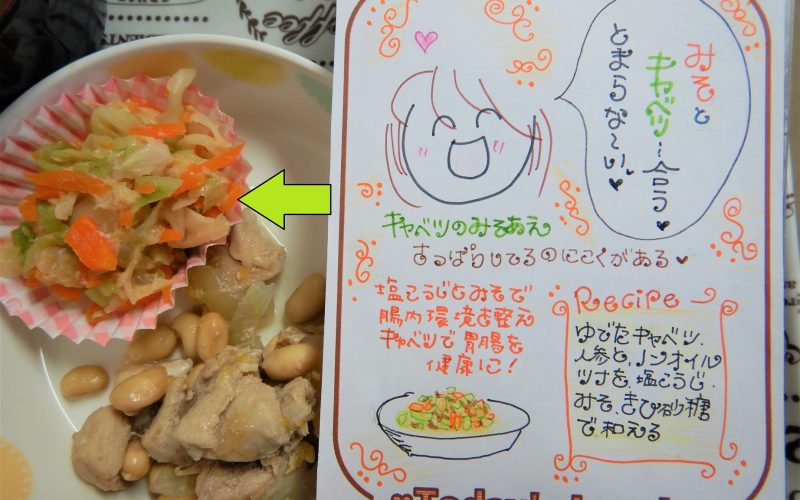 みそと
キャベツ…合う
とまらな〜い♥
キャベツのみそあえ
さっぱりしてるのにこくがある♥
塩こうじとみそで
腸内環境を整え
キャベツで胃腸を
健康に!
Recipe
ゆでたキャベツ、
人参と、ノンオイル
ツナを、塩こうじ、
みそ、きび砂糖
で和える